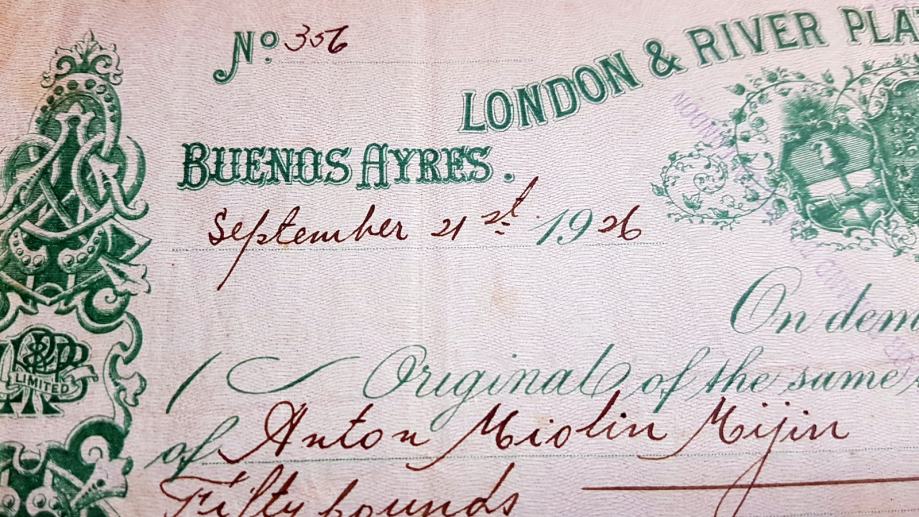 Nº 356
LONDON & RIVER PLA
BUENOS AYRES.
September 21st 1926
On dem
Original of the same
LIMITED
of Anton Miolin Mijin
Fifty pounds